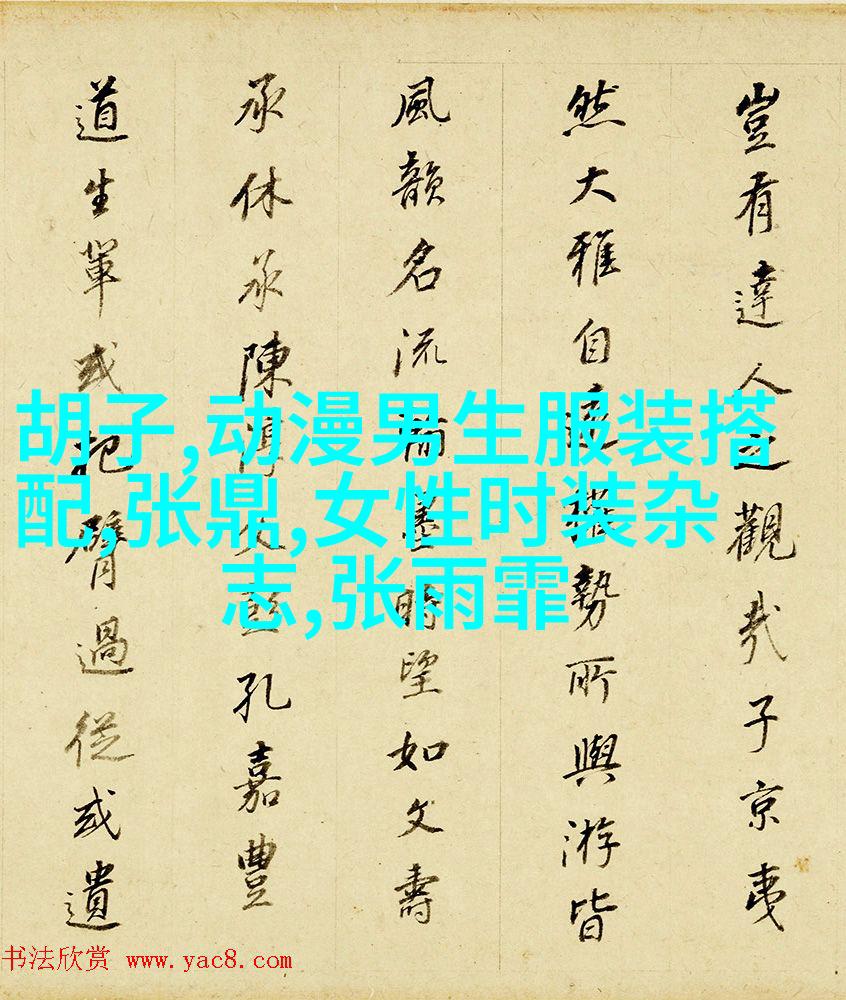 豈有達人之觀哉子京夷
然大雅自遠權勢所與游皆
風韻名流翰墨時望如文壽
承休承陳淳文彭孔嘉豐
道生輩或把臂過從或遺
胡子,动漫男生服装搭
配,张鼎,女性时装杂
志,张雨霏
书法欣赏 www.yac8.com